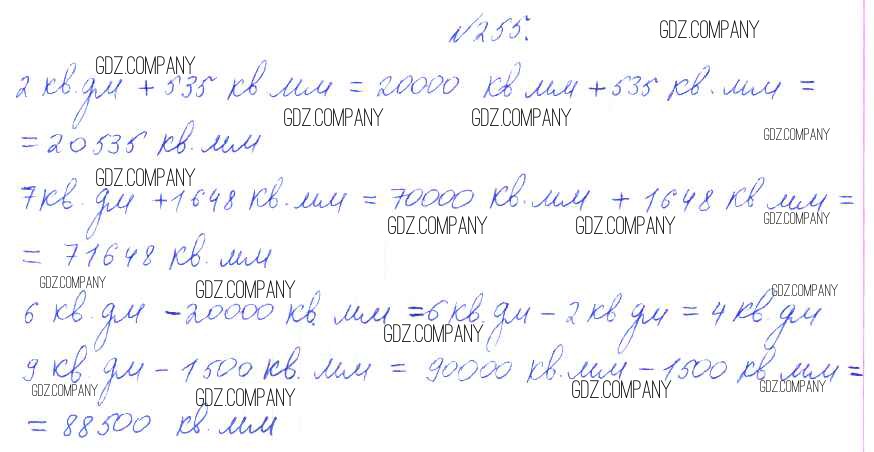 №255. GDZ.COMPANY
GDZ.COMPANY
2 кв.дм + 535 кв мм = 20000 кв мм + 535 кв.мм =
GDZ.COMPANY GDZ.COMPANY GDZ.COMPANY
= 20535 кв.мм
GDZ.COMPANY
7 кв.дм + 1648 кв.мм = 70000 кв.мм + 1648 кв мм =
GDZ.COMPANY GDZ.COMPANY GDZ.COMPANY
= 71648 кв.мм
GDZ.COMPANY GDZ.COMPANY GDZ.COMPANY
6 кв.дм - 20000 кв.мм = 6 кв.дм - 2 кв дм = 4 кв.дм
GDZ.COMPANY
9 кв.дм - 1500 кв.мм = 90000 кв.мм - 1500 кв.мм =
GDZ.COMPANY GDZ.COMPANY GDZ.COMPANY GDZ.COMPANY
= 88500 кв.мм